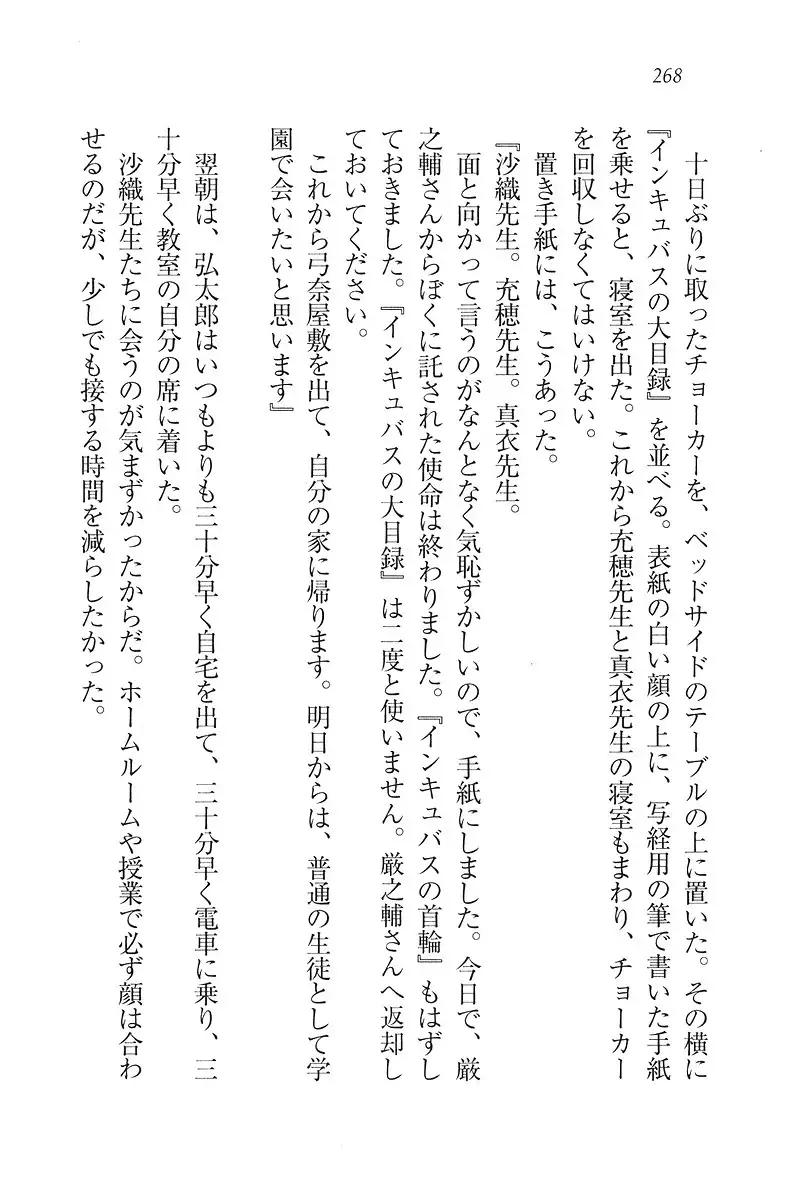 268
十日ぶりに取ったチョーカーを、ベッドサイドのテーブルの上に置いた。その横に
『インキュバスの大目録』を並べる。表紙の白い顔の上に、写経用の筆で書いた手紙
を乗せると、寝室を出た。これから充穂先生と真衣先生の寝室もまわり、チョーカー
を回収しなくてはいけない。
置き手紙には、こうあった。
『沙織先生。充穂先生。真衣先生。
面と向かって言うのがなんとなく気恥ずかしいので、手紙にしました。今日で、厳
之輔さんからぼくに託された使命は終わりました。『インキュバスの首輪』もはずし
ておきました。『インキュバスの大目録』は二度と使いません。厳之輔さんへ返却し
ておいてください。
これから弓奈屋敷を出て、自分の家に帰ります。明日からは、普通の生徒として学
園で会いたいと思います』
翌朝は、弘太郎はいつもよりも三十分早く自宅を出て、三十分早く電車に乗り、三
十分早く教室の自分の席に着いた。
沙織先生たちに会うのが気まずかったからだ。ホームルームや授業で必ず顔は合わ
せるのだが、少しでも接する時間を減らしたかった。